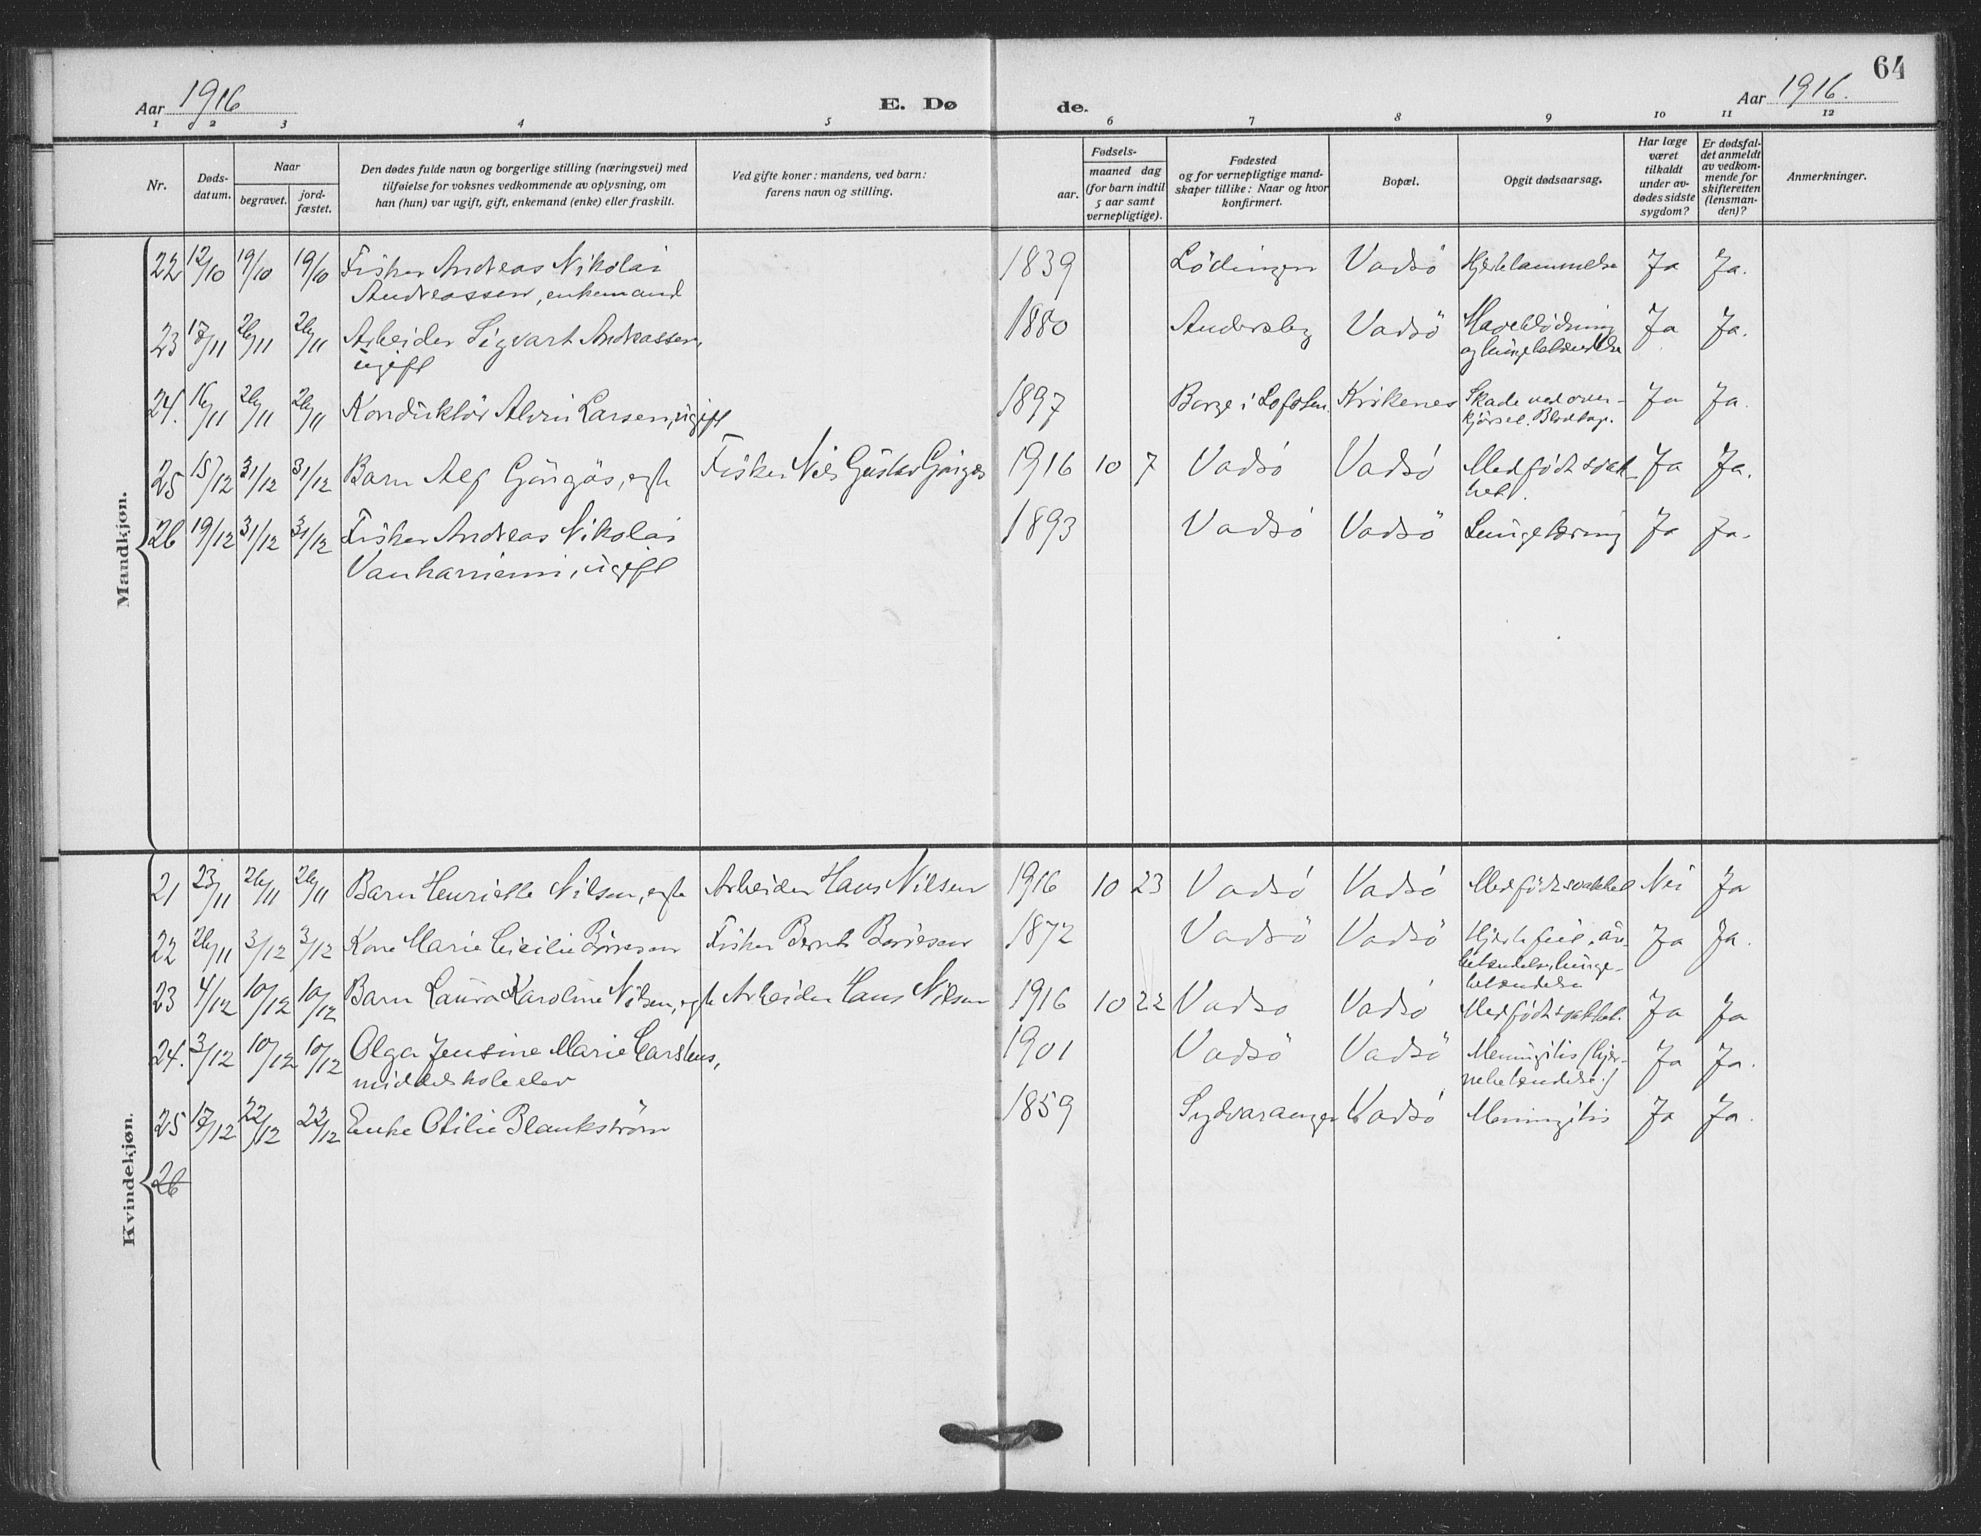 64
Aar 1916
E. Dø
de.
Aar 1916.
1 2 3 4 5 6 7 8 9 10 11 12
Nr.
Døds-
datum.
Naar
begravet.
jord-
fæstet.
Den dødes fulde navn og borgerlige stilling (næringsvei) med
tilføielse for voksnes vedkommende av oplysning, om
han (hun) var ugift, gift, enkemand (enke) eller fraskilt.
Ved gifte koner: mandens, ved barn:
farens navn og stilling.
Fødsels-
aar.
maaned dag
(for barn indtil
5 aar samt
vernepligtige).
Fødested
og for vernepligtige mand-
skaper tillike: Naar og hvor
konfirmert.
Bopæl.
Opgit dødsaarsag.
Har læge
været
tilkaldt
under av-
dødes sidste
sygdom?
Er dødsfal-
det anmeldt
av vedkom-
mende for
skifteretten
(lensman-
den)?
Anmerkninger.
Mandkjøn.
22 12/10 19/10 19/10 Fisker Andreas Nikolai 1839 Lödingen Vadsö Hjertelammelse Ja Ja.
Andreassen, enkemand
23 17/11 26/11 26/11 Arbeider Sigvart Andreassen, 1880 Andersby Vadsö Maveblödning Ja Ja.
ugift og lungebetændelse
24. 16/11 26/11 26/11 Konduktör Alvin Larsen, ugift 1897 Borge i Lofoten Kirkenes Skade ved over- Ja Ja.
kjörsel. Blodtap.
25 15/12 31/12 31/12 Barn Alf Göngös, egte Fisker Nils Gustav Göngös 1916 10 7 Vadsö Vadsö Medfödt svak- Ja Ja.
het.
26 19/12 31/12 31/12 Fisker Andreas Nikolai 1893 Vadsö Vadsö Lungetæring Ja Ja.
Vanhaniemi, ugift
Kvindekjøn.
21 23/11 26/11 26/11 Barn Henriette Nilsen, egte Arbeider Hans Nilsen 1916 10 23 Vadsö Vadsö Medfödt svakhet Nei Ja
22 26/11 3/12 3/12 Kone Marie Cicilie Böresen Fisker Bernt Böresen 1872 Vadsö Vadsö Hjertefeil, Ja Ja.
betændelse, lunge-
betændelse
23 4/12 10/12 10/12 Barn Laura Karoline Nilsen, egte Arbeider Hans Nilsen 1916 10 22 Vadso Vadsö Medfödt svakhet. Ja Ja
24. 3/12 10/12 10/12 Olga Jensine Marie Carstens, 1901 Vadsö Vadsö Meningitis (hjer- Ja Ja.
middelskoleelev nebetændelse.)
25 17/12 22/12 22/12 Enke Otilie Blankström 1859 Sydvaranger Vadsö Meningitis Ja Ja.
26